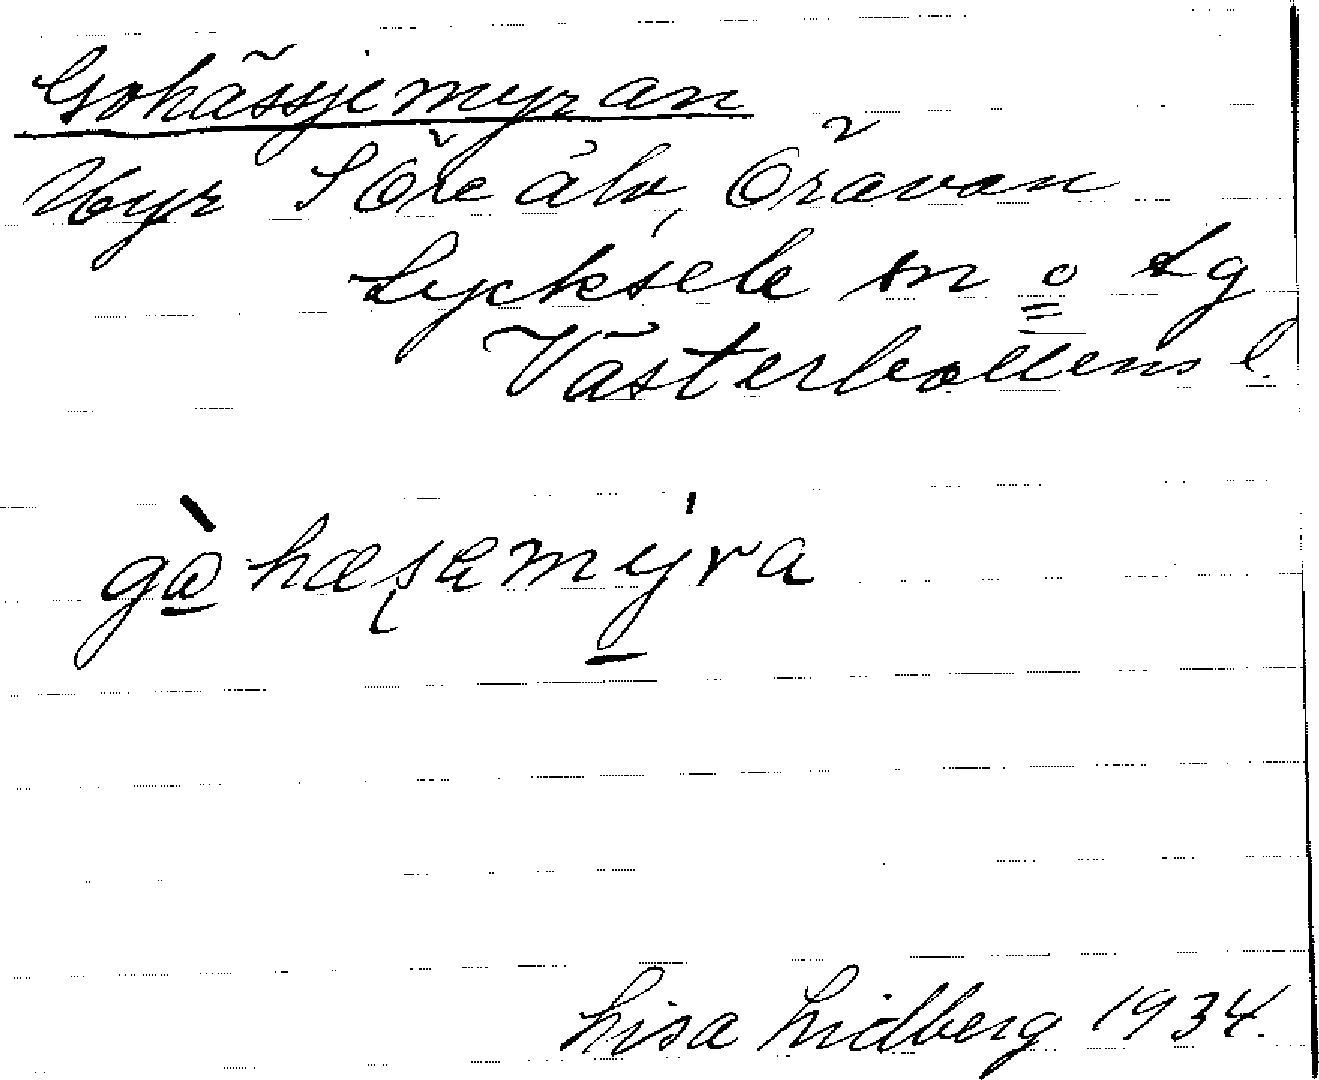 Gohässjemyran
Myr S Öre älv, Öravan
Lycksele sn o Lg
Västerbottens l.
gòhæʂemýra
Lisa Lidberg 1934.